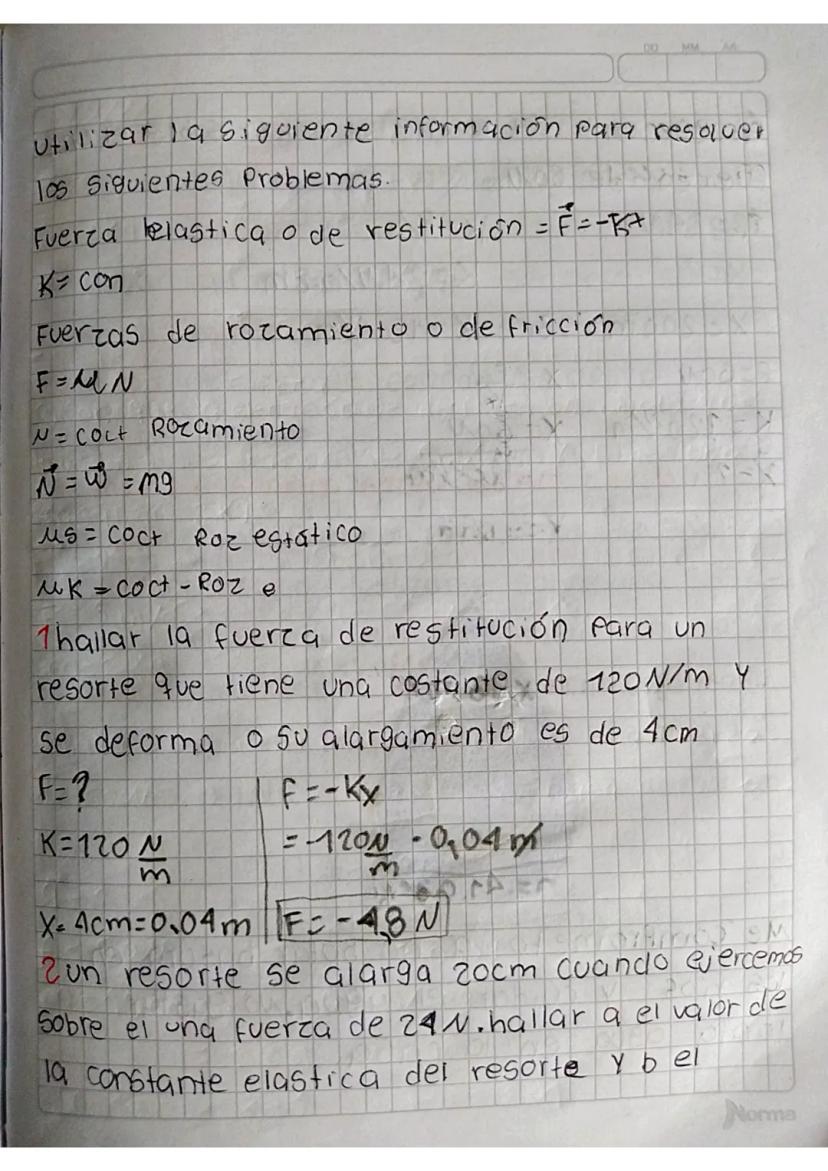 DD MM AA
utilizar la siguiente información para resolver
los siguientes problemas.
Fuerza elastica o de restitución = F⃗ = -Kx
K= con
Fuerzas de rozamiento o de fricción
F = μN
N = coct Rozamiento
N⃗ = w⃗ = mg
μs = coct Roz estático
μK = coct - Roz e
1 hallar la fuerza de restitución para un
resorte que tiene una costante de 120 N/m y
se deforma o su alargamiento es de 4cm
F=? F = -Kx
K=120 N/m = -120 N/m · 0,04 m
X= 4cm=0,04m F= -4,8 N
2 un resorte se alarga 20cm cuando ejercemos
sobre el una fuerza de 24N. hallar a el valor de
la constante elastica del resorte y b el
Norma